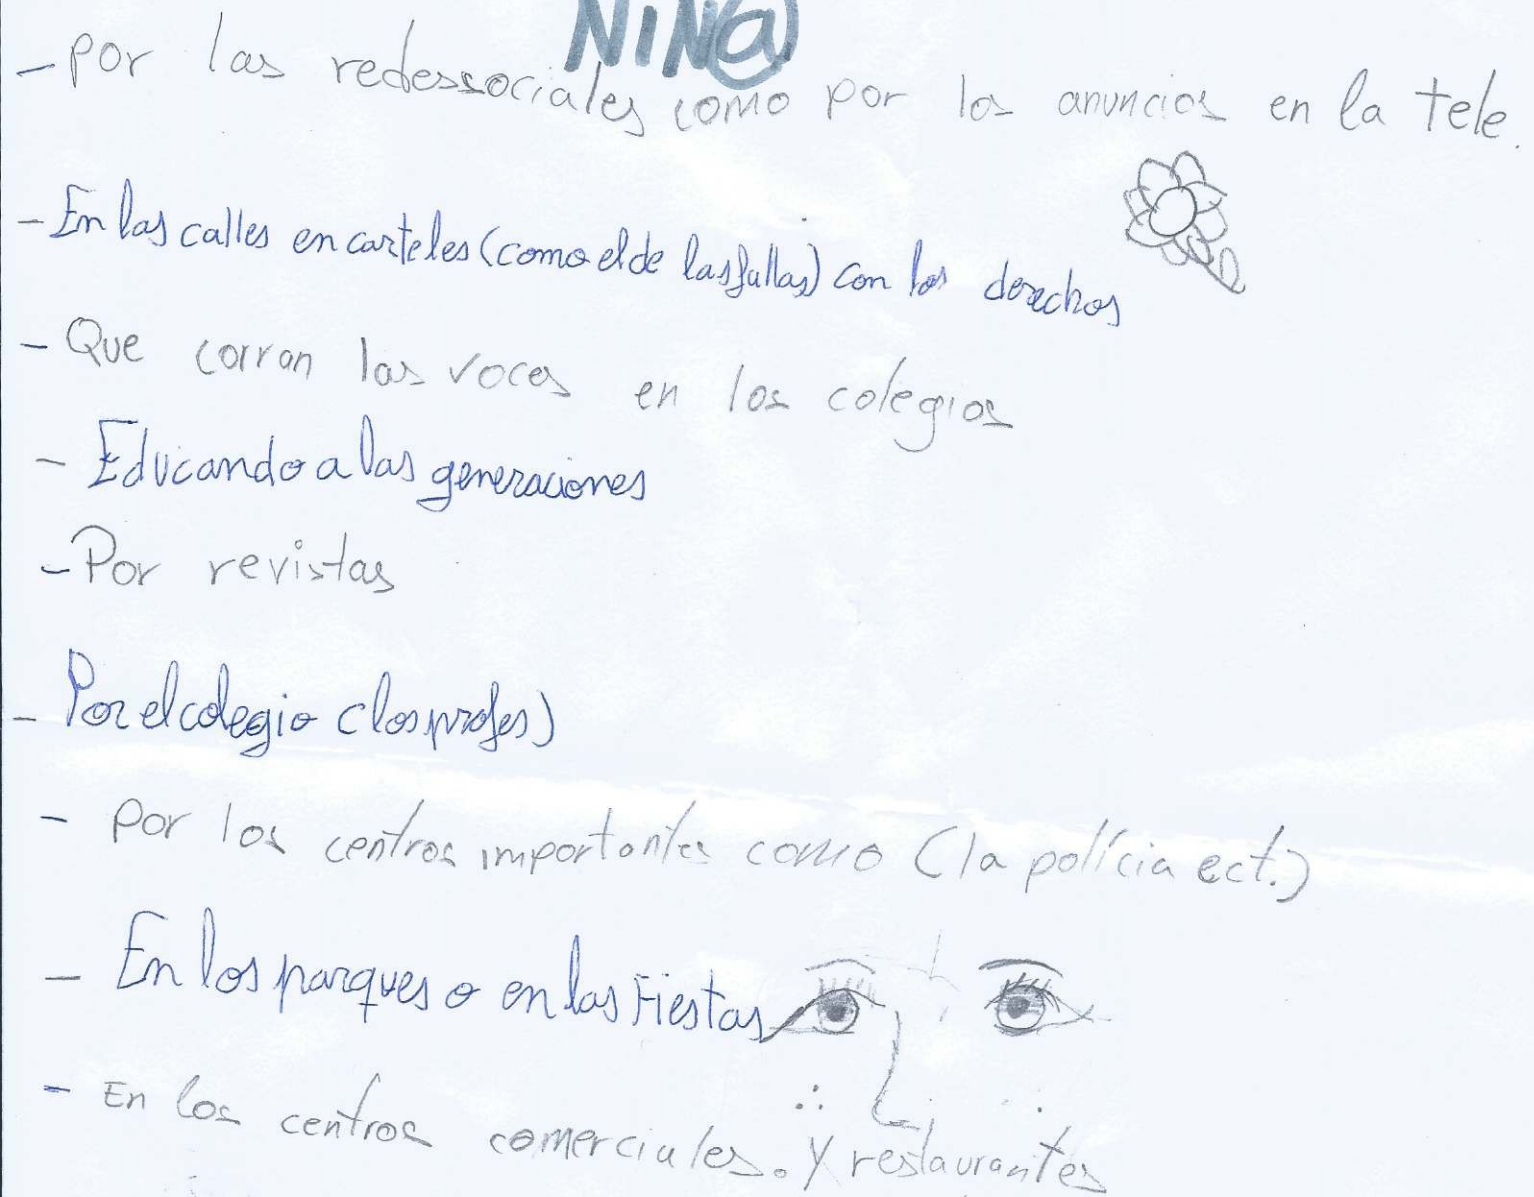 NIN@
- por las redessociales como por los anuncios en la tele.
- En las calles en carteles (como el de las fallas) con los derechos
- Que corran las voces en los colegios
- Educando a las generaciones
- Por revistas
- Por el colegio (los profes)
- Por los centros importantes como (la policia ect.)
- En los parques o en las Fiestas
- En los centros comerciales. y restaurantes